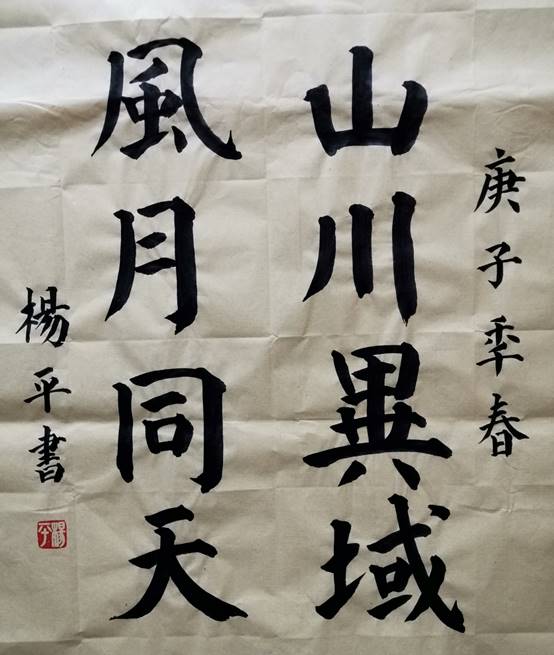 庚子秊春
山川異域
風月同天
楊平書
楊平